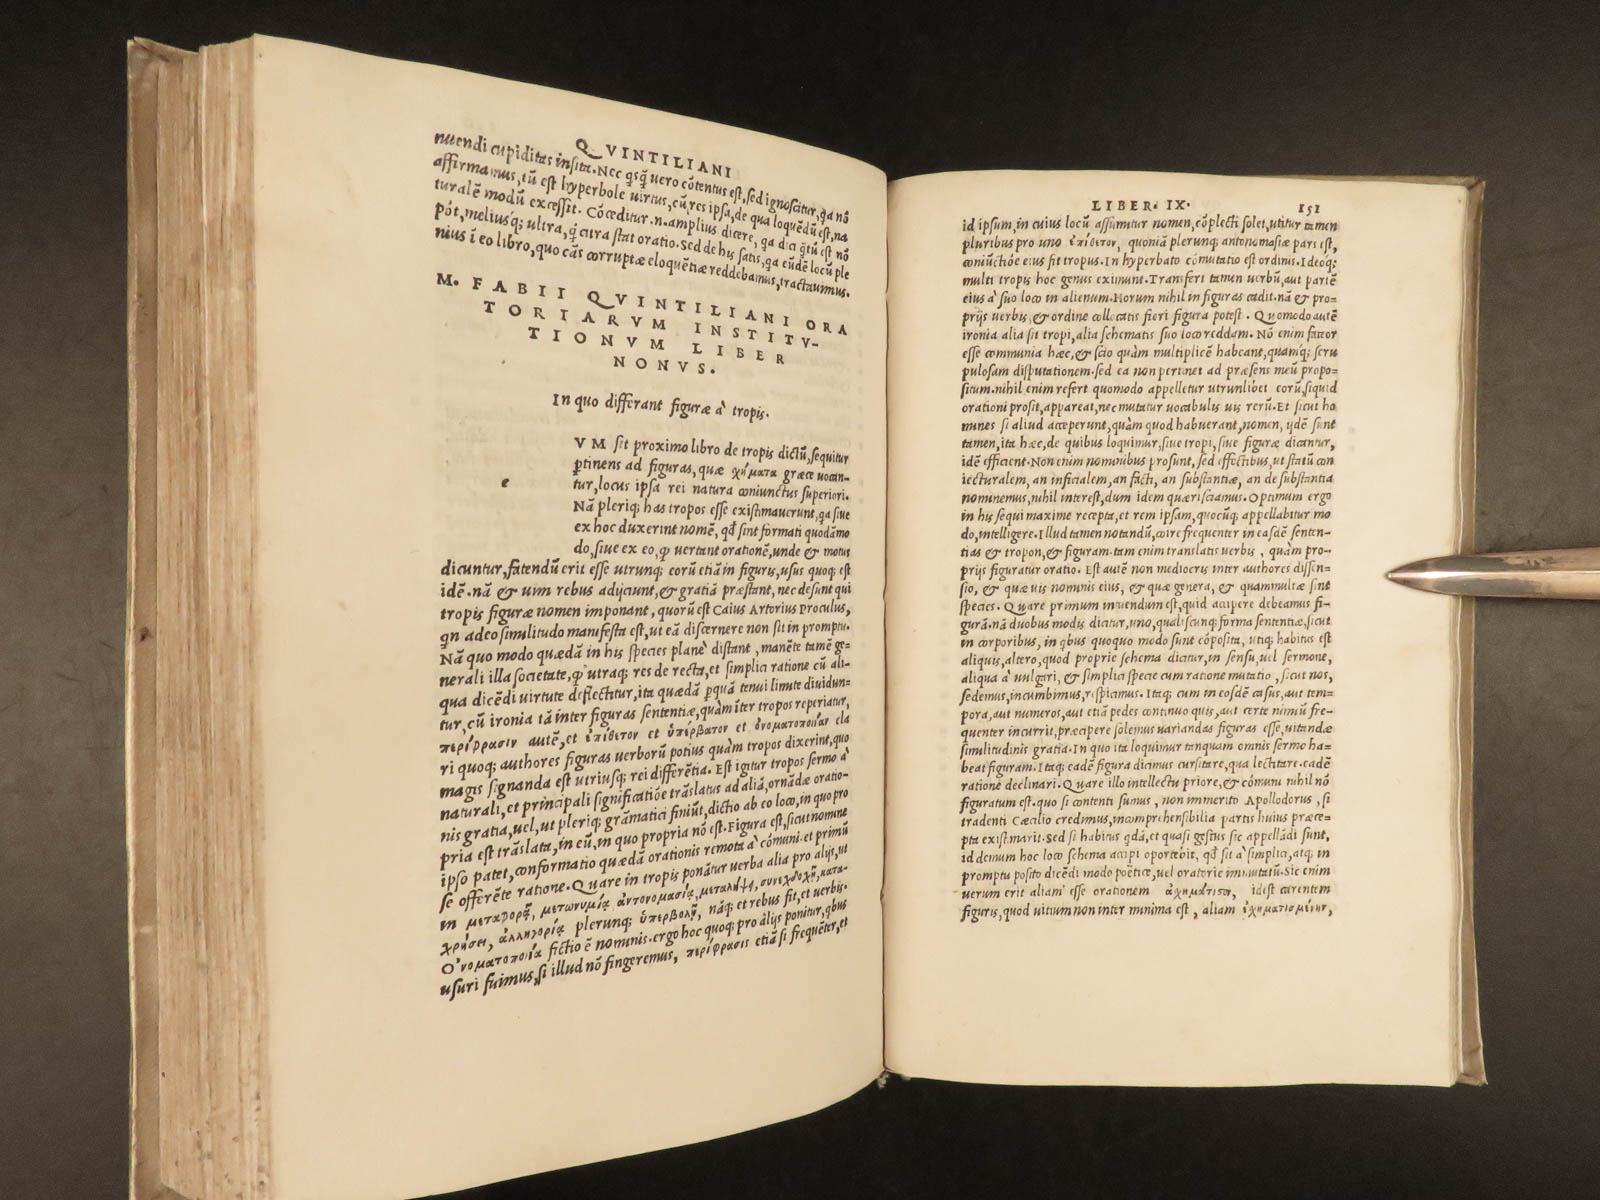 QVINTILIANI
nuendi cupiditas insita. Nec qsq̃ uero cõtentus est, sed ignoscitur, q̃a nõ
affirmamus, tũ est hyperbole uirtus, cũ res ipsa, de qua loquẽdũ est, na
turalẽ modũ excessit. Cõceditur .n. amplius dicere, q̃a dici q̃tũ est nõ
pót, meliusq; ultra, q̃ citra stat oratio. Sed de his satis, q̃a eũdẽ locũ ple
nius ĩ eo libro, quo cãs corruptæ eloquẽtiæ reddebamus, tractauimus.
M. FABII QVINTILIANI ORA
TORIARVM INSTITV-
TIONVM LIBER
NONVS.
In quo differant figuræ à tropis.
VM sit proximo libro de tropis dictũ, sequitur
ꝑtinens ad figuras, quæ χήματα græce uocan-
tur, locus ipsa rei natura coniunctus superiori.
Nã pleriq; has tropos esse existimauerunt, q̃a siue
e ex hoc duxerint nomẽ, qđ sint formati quodãmo
do, siue ex eo, ꝙ uertant orationẽ, unde & motus
dicuntur, fatendũ erit esse utrunq; eorũ etiã in figuris, usus quoq; est
idẽ. nã & uim rebus adijciunt, & gratiã præstant, nec desunt qui
tropis figuræ nomen imponant, quorũ est Caius Artorius Proculus,
qn adeo similitudo manifesta est, ut eã discernere non sit in promptu.
Nã quo modo quædã in his species planè distant, manẽte tamẽ ge-
nerali illa societate, ꝙ utraq; res de recta, et simplici ratione cũ ali-
qua dicẽdi uirtute deflectitur, ita quædã ꝑquã tenui limite diuidun-
tur, cũ ironia tã inter figuras sententiæ, quàm ĩter tropos reperiatur,
περίφρασιν autẽ, et ἐπίθετον et ὑπέρβατον et ὀνοματοποιΐαν cla
ri quoq; authores figuras uerborũ potius quàm tropos dixerint, quo
magis signanda est utriusq; rei differẽtia. Est igitur tropos sermo à
naturali, et principali significatiõe trãslatus ad aliã, ornãdæ oratio-
nis gratia, uel, ut pleriq; grãmatici finiũt, dictio ab eo loco, in quo pro
pria est trãslata, in eũ, in quo propria nõ est. Figura est, sicut nomine
ipso patet, conformatio quædã orationis remota à cõmuni. et primũ
se offerẽte ratione. Quare in tropis ponãtur uerba alia pro alijs, ut
in μεταφορᾷ, μετωνυμίᾳ ἀντονομασίᾳ, μεταλήψῃ, συνεχδοχῇ, κατα-
χρήσει, ἀλληγορίᾳ plerunq; ὑπερβολῇ, nãq; et rebus fit, et uerbis.
Ὀνοματοποιΐα fictio ẽ nominis. ergo hoc quoq; pro alijs ponitur, qbus
usuri fuimus, si illud nõ fingeremus, περίφρασις etiã si frequẽter, et
LIBER. IX. 151
id ipsum, in cuius locũ assumitur nomen, cõplecti solet, utitur tamen
pluribus pro uno ἐπίθετον, quoniã plerunq; antonomasiæ pars est,
coniũctiõe eius fit tropus. In hyperbato cõmutatio est ordinis. Ideoq;
multi tropis hoc genus eximunt. Transfert tamen uerbũ, aut partẽ
eius à suo loco in alienum. Horum nihil in figuras cadit. nã & pro-
prijs uerbis, & ordine collocatis fieri figura potest. Quomodo autẽ
ironia alia sit tropi, alia schematis suo loco reddam. Nõ enim fateor
esse communia hæc, & scio quàm multiplicẽ habeant, quamq; scru
pulosam disputationem. sed ea non pertinet ad præsens meũ propo-
situm. nihil enim refert quomodo appelletur utrunlibet eorũ, siquid
orationi prosit, appareat, nec mutatur uocabulis uis rerũ. Et sicut ho
mines si aliud acceperunt, quàm quod habuerant, nomen, ijdẽ sunt
tamen, ita hæc, de quibus loquimur, siue tropi, siue figuræ dicantur,
idẽ efficient. Non enim nominibus prosunt, sed effectibus, ut statũ con
iecturalem, an inficialem, an facti, an substantiæ, an de substantia
nominemus, nihil interest, dum idem quæri sciamus. Optimum ergo
in his sequi maxime recepta, et rem ipsam, quocũq; appellabitur mo
do, intelligere. Illud tamen notandũ, coire frequenter in easdẽ senten-
tias & tropon, & figuram. tam enim translatis uerbis, quàm pro-
prijs figuratur oratio. Est autẽ non mediocris inter authores dissen-
sio, & quæ uis nominis eius, & quæ genera, & quammultæ sint
species. Quare primum intuendum est, quid accipere debeamus fi-
gurã. nã duobus modis dicitur, uno, qualiscunq; forma sententiæ, sicut
in corporibus, in qbus quoquo modo sunt cõposita, utiq; habitus est
aliquis, altero, quod proprie schema dicitur, in sensu, uel sermone,
aliqua à uulgari, & simplici specie cum ratione mutatio, sicut nos,
sedemus, incumbimus, respicimus. Itaq; cum in eosdẽ casus, aut tem-
pora, aut numeros, aut etiã pedes continuo quis, aut certe nimiũ fre-
quenter incurrit, præcipere solemus uariandas figuras esse, uitandæ
similitudinis gratia. In quo ita loquimur tanquam omnis sermo ha-
beat figuram. Itaq; eadẽ figura dicimus cursitare, qua lectitare. eadẽ
ratione declinari. Quare illo intellectu priore, & cõmuni nihil nõ
figuratum est. quo si contenti sumus, non immerito Apollodorus, si
tradenti Cæcilio credimus, incomprehensibilia partis huius præce-
pta existimarit. Sed si habitus qdã, et quasi gestus sic appellãdi sunt,
id demum hoc loco schema accipi oportebit, qđ sit à simplici, atq; in
promptu posito dicẽdi modo poëtice, uel oratorie immutatũ. Sic enim
uerum erit aliam esse orationem ἀχημάτιστον, idest carentem
figuris, quod uitium non inter minima est, aliam ἐχηματισμένην,